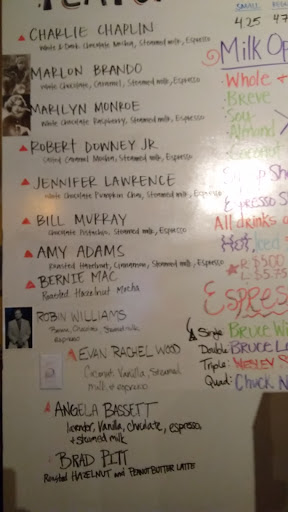 SMALL
4.25
CHARLIE CHAPLIN
White & Dark Chocolate Mocha, Steamed milk, Espresso
MARLON BRANDO
White Chocolate, Caramel, Steamed milk, Espresso
MARILYN MONROE
White Chocolate Raspberry, Steamed milk, Espresso
ROBERT DOWNEY JR
Salted Caramel Mocha, Steamed milk, Espresso
JENNIFER LAWRENCE
White Chocolate Pumpkin Chai, Steamed milk, Espresso
BILL MURRAY
Chocolate Pistachio, Steamed milk, Espresso
AMY ADAMS
Roasted Hazelnut, Cinnamon, Steamed milk, Espresso
BERNIE MAC
Roasted Hazelnut Mocha
ROBIN WILLIAMS
Steamed milk
Espresso
EVAN RACHEL WOOD
Coconut, Vanilla, Steamed
milk & espresso
ANGELA BASSETT
lavender, Vanilla, chocolate, espresso
+ steamed milk
BRAD PITT
Roasted HAZELNUT and PEANUT BUTTER LATTE
Milk Op
Whole +
Breve
Soy
Almond
Coconut
Sh
Espresso S
All drinks a
Hot Iced
R: $5.00
L: $5.75
Espres
Single: Bruce Wi
Double: BRUCE Le
Triple: WESLEY S
Quad: Chuck N